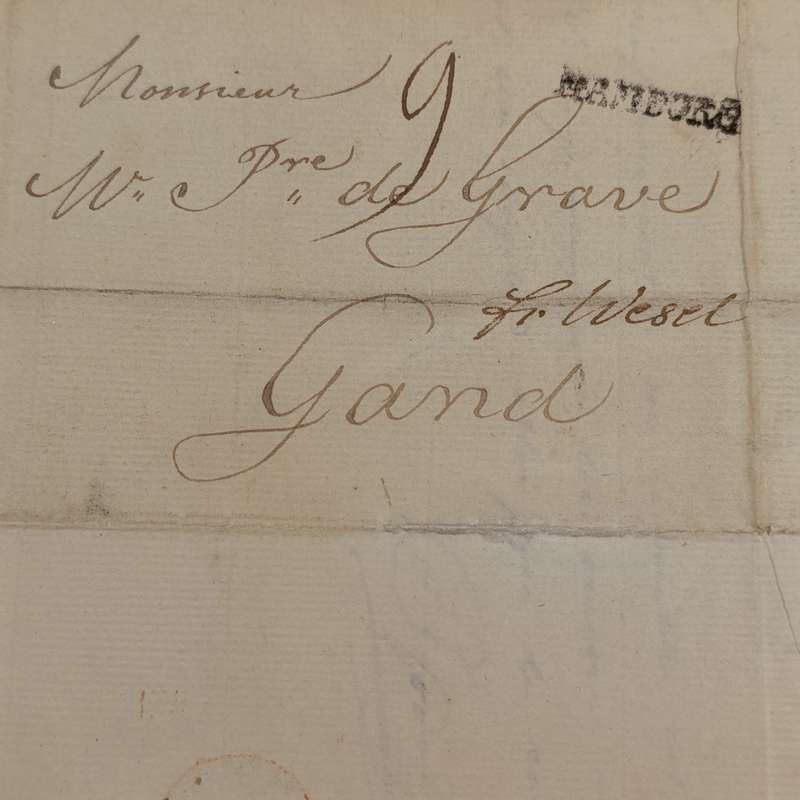 Monsieur 9
Mr. Pre de Grave
fr. Wesel
Gand